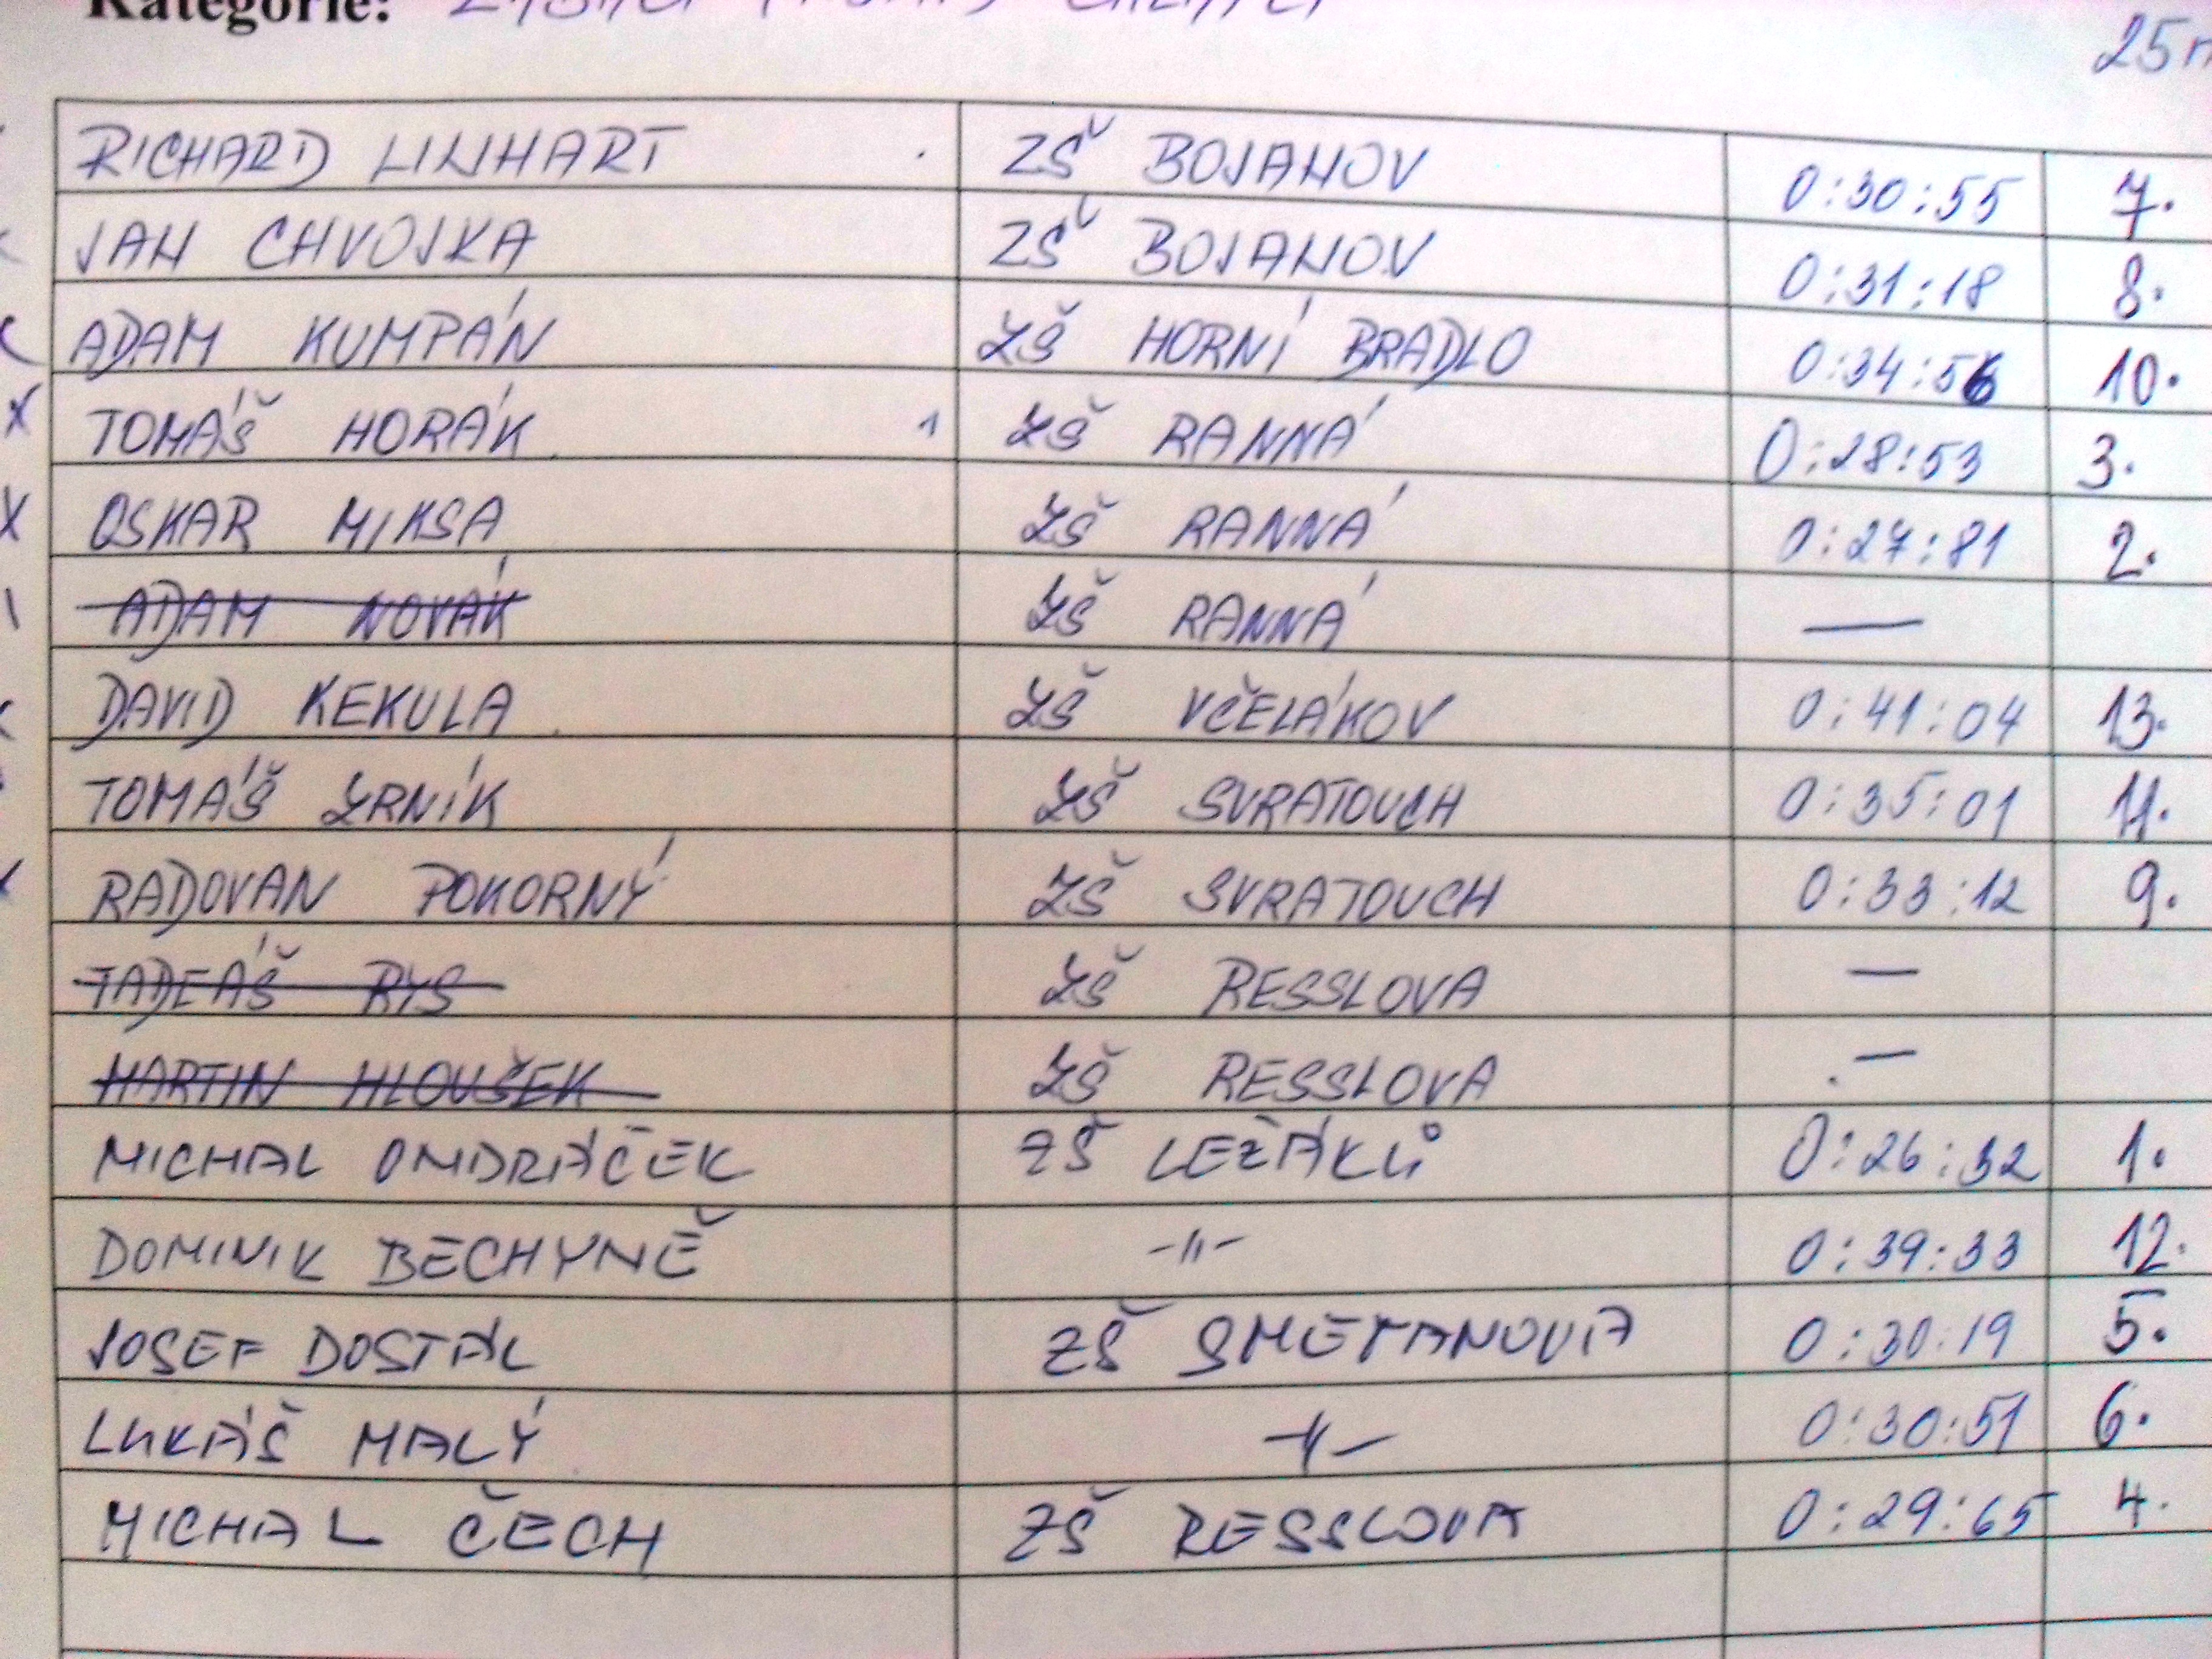 Kategorie:
25
RICHARD LINHART ZŠ BOJANOV 0:30:55 7.
JAN CHVOJKA ZŠ BOJANOV 0:31:18 8.
ADAM KUMPÁN ZŠ HORNÍ BRADLO 0:34:56 10.
TOMÁŠ HORÁK 1 ZŠ RANNÁ 0:28:53 3.
OSKAR MIKSA ZŠ RANNÁ 0:27:81 2.
ADAM NOVÁK ZŠ RANNÁ —
DAVID KEKULA ZŠ VČELÁKOV 0:41:04 13.
TOMÁŠ ZRNÍK ZŠ SVRATOUCH 0:35:01 11.
RADOVAN POKORNÝ ZŠ SVRATOUCH 0:33:12 9.
TADEÁŠ RYS ZŠ RESSLOVA —
MARTIN HLOUŠEK ZŠ RESSLOVA —
MICHAL ONDRÁČEK ZŠ LEŽÁKŮ 0:26:32 1.
DOMINIK BECHYNĚ -11- 0:39:33 12.
JOSEF DOSTÁL ZŠ SMETANOVA 0:30:19 5.
LUKÁŠ MALÝ -11- 0:30:51 6.
MICHAL ČECH ZŠ RESSLOVA 0:29:65 4.